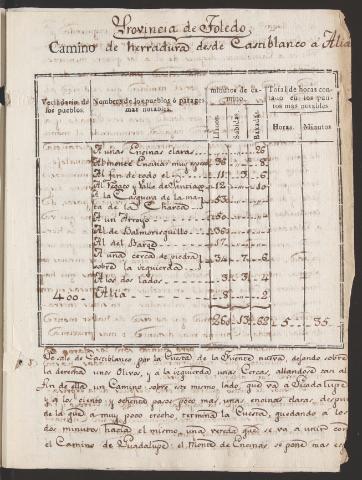 Provincia de Toledo.
Camino de herradura desde Castiblanco a Alia
Vecindario de los pueblos.
Nombres de los pueblos ó parages mas notables.
minutos de camino.
Llanos. Subidas. Bajadas.
Total de horas contado en los puntos mas notables.
Horas. Minutos
A unas Encinas claras 26
Al monte Encinar muy espeso 36 " 8
Al fin de todo el 11 3 6
12 10
A la Casquera de la mata de la Charca 53
A un Arroyo 50
Al de Balmorisquillo 36
Al del Barze 17
A una cerca de piedra sobre la izquierda 34 7 6
A los dos lados 3 3 4
400 Alia 8 " 2
260 13 62 5 35
Se sale de Castiblanco por la Cuesta de la Fuente nueva, dejando sobre
la derecha unos Olivos, y a la izquierda unas Cercas, allandose casi al
fin de ella un Camino sobre este mismo lado, que va a Guadalupe
y a los ciento y ochenta pasos poco mas, unas encinas claras, despues
de la que a muy poco trecho, termina la Cuesta, quedando a los
dos minutos hacia el mismo, una vereda que se va a unir con
el Camino de Guadalupe: el monte de Encinas, se pone mas es